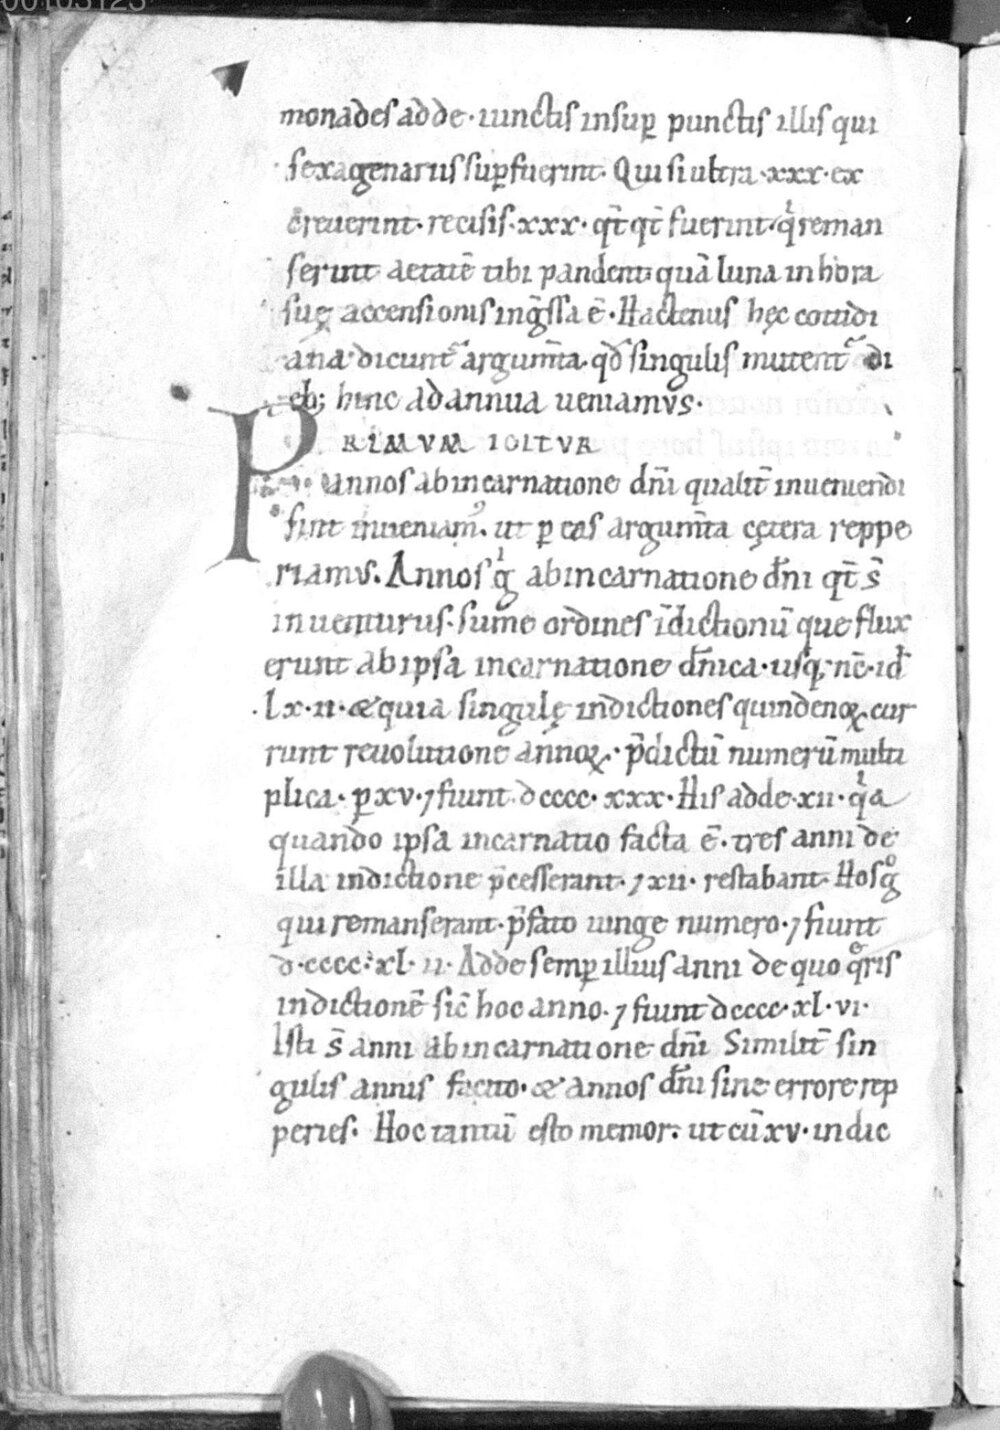 00103123
monades adde· iunctis insuꝑ punctis illis qui
sexagenarius suꝑfuerint· Qui si ultra ·xxx· ex
creuerint· recisis ·xxx· qt̄ qt̄ fuerint· qͥ reman
serint aetatē tibi pandent quā luna in hora
suę accensionis ing̃ssa ē· Hactenus hęc cotidi
ana dicunt᷑ argum̄ta· qđ singulis mutent᷑ di
eb; hinc ad annua ueniamus·
PRIMUM IGITUR
annos ab incarnatione dn̄i qualit̄ inueniendi
sint inueniamꝰ· ut ꝑ eos argum̄ta cętera reppe
riamus· Annos gͥ ab incarnatione dn̄i qt̄ s̄
inuenturus· sume ordines īdictionū que flux
erunt ab ipsa incarnatione dn̄ica· usq; nc̄· id̄
·lx·ii· & quia singulę indictiones quindenoꝝ cur
runt reuolutione annoꝝ· p̄dictū numerū multi
plica· ꝑ xv· ⁊ fiunt· dcccc· xxx· His adde· xii· qͥa
quando ipsa incarnatio facta ē· tres anni de
illa indictione p̄cesserant· ⁊ xii· restabant· Hos gͦ
qui remanserant· p̄fato iunge numero· ⁊ fiunt
d·cccc· xl·ii· Adde semꝑ illius anni de quo qͤris
indictionē sic̄ hoc anno· ⁊ fiunt dcccc· xl·vi·
Isti s̄ anni ab incarnatione dn̄i Similit̄ sin
gulis annis facito· & annos dn̄i sine errore rep
peries· Hoc tantū esto memor· ut cū xv· indic